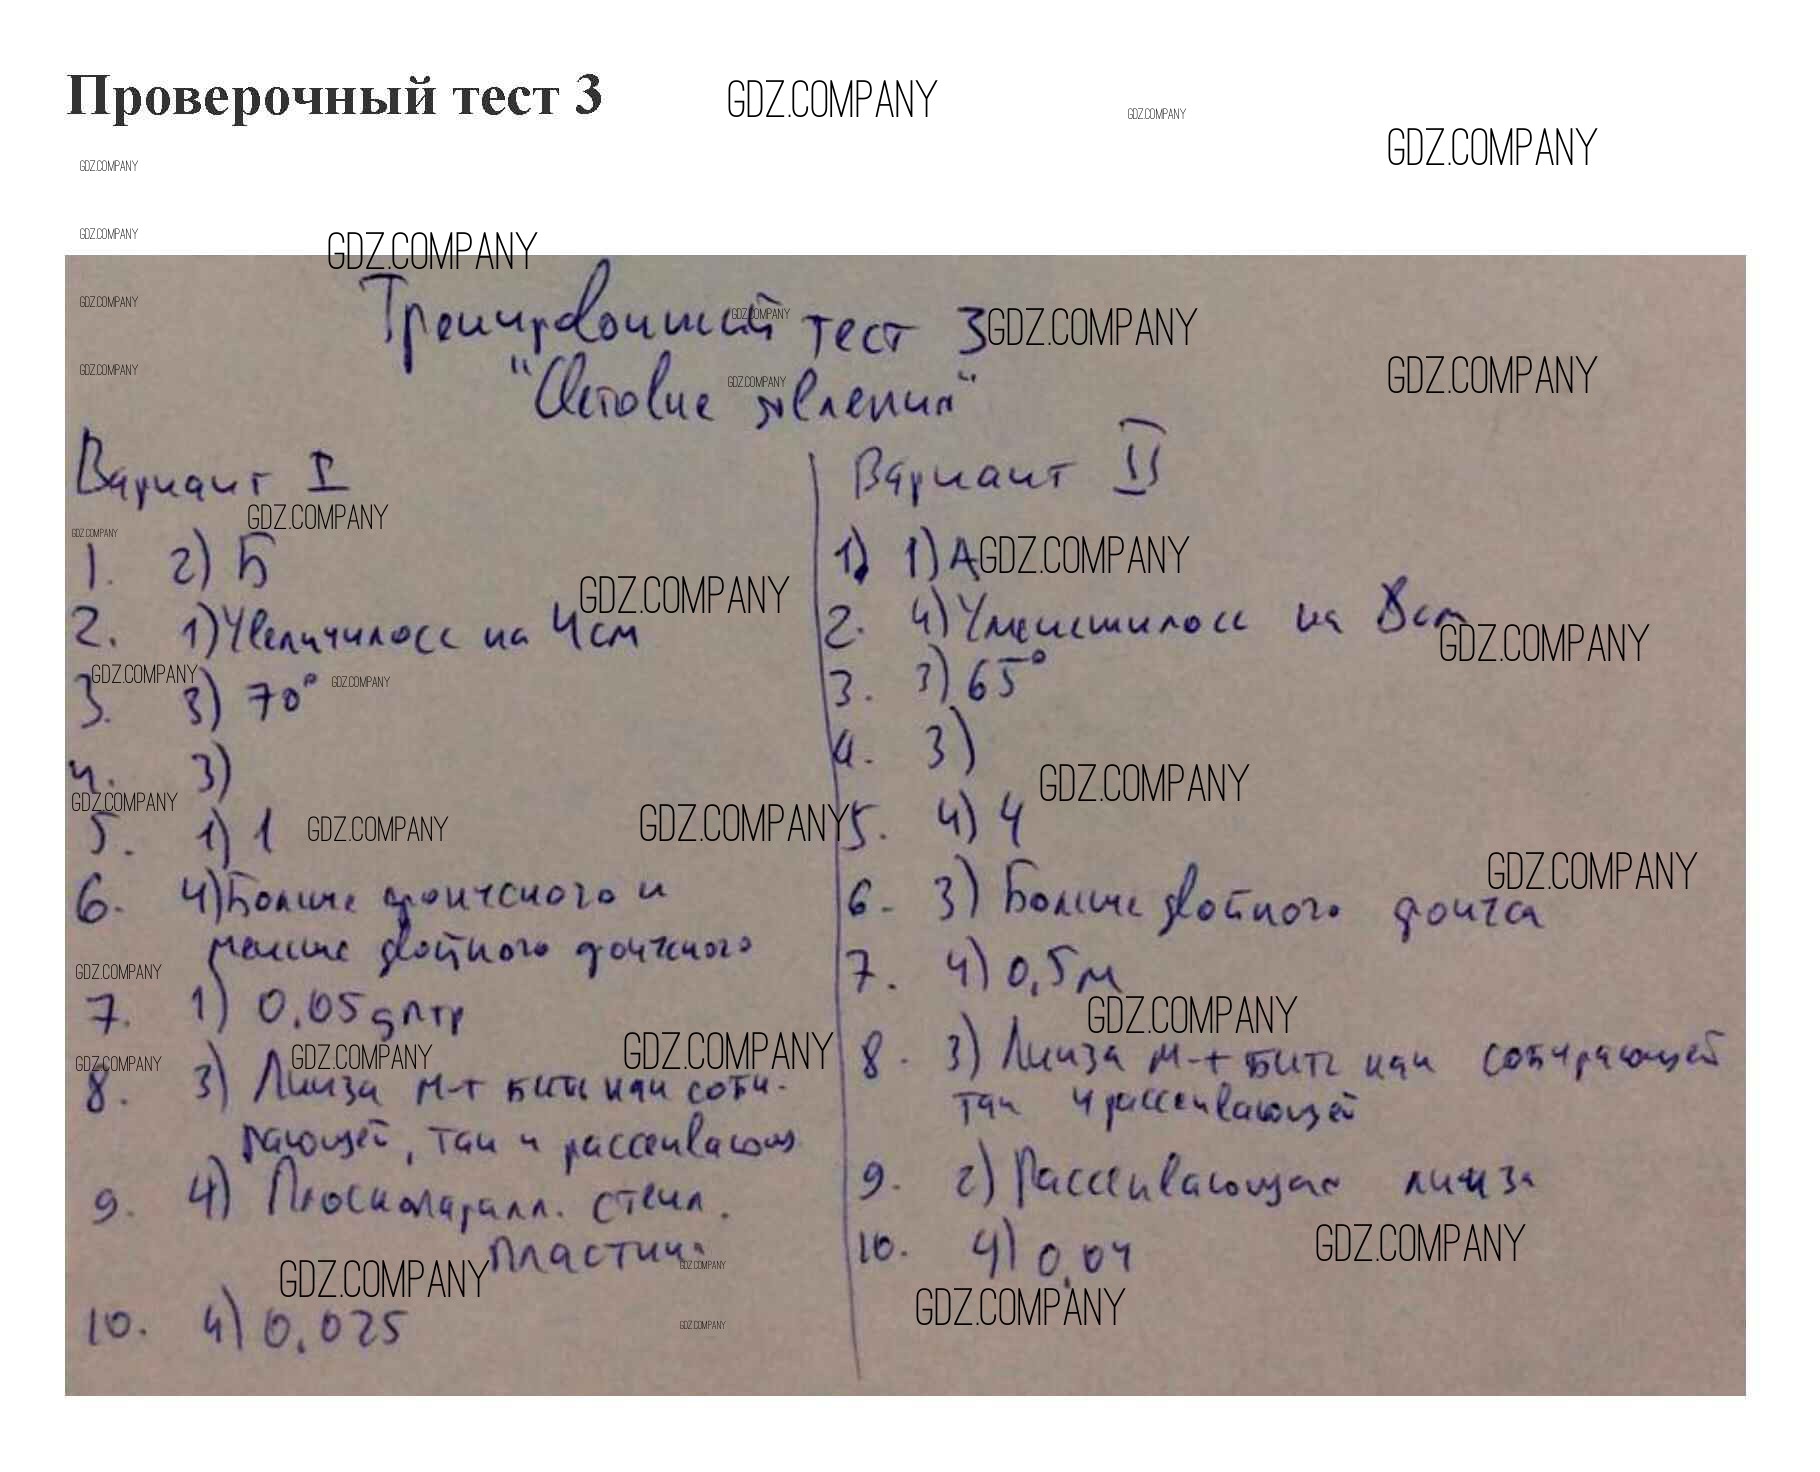 Проверочный тест 3
GDZ.COMPANY
Тренировочный тест 3
"Световые явления"
Вариант I
1. 2) Б
2. 1) Увеличилось на 4 см
3. 3) 70°
4. 3)
5. 1) 1
6. 4) Больше фокусного и
меньше двойного фокусного
7. 1) 0,05 дптр
8. 3) Линза м-т быть как соби-
рающей, так и рассеивающ
9. 4) Плоскопаралл. стекл.
пластин
10. 4) 0,025
Вариант II
1) 1) А
2. 4) Уменьшилось на 8 см
3. 3) 65°
4. 3)
5. 4) 4
6. 3) Больше двойного фокуса
7. 4) 0,5 м
8. 3) Линза м-т быть как собирающей
так и рассеивающей
9. 2) Рассеивающая линза
10. 4) 0,04